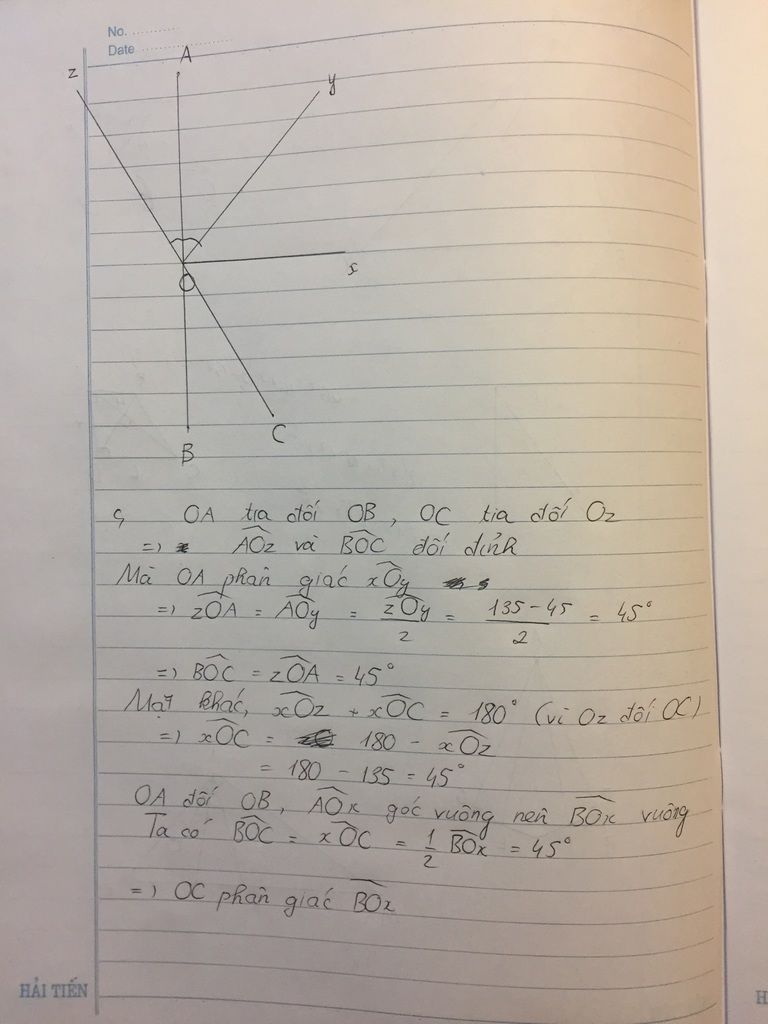 No.
Date
A
z
y
x
O
B
C
c, OA tia đối OB, OC tia đối Oz
=> AOz và BOC đối đỉnh
Mà OA phân giác xOy
=> zOA = AOy = zOy/2 = (135 - 45)/2 = 45°
=> BOC = zOA = 45°
Mặt khác, xOz + xOC = 180° (vì Oz đối OC)
=> xOC = 180 - xOz
= 180 - 135 = 45°
OA đối OB, AOx góc vuông nên BOx vuông
Ta có BOC = xOC = 1/2 BOx = 45°
=> OC phân giác BOx
HẢI TIẾN
H